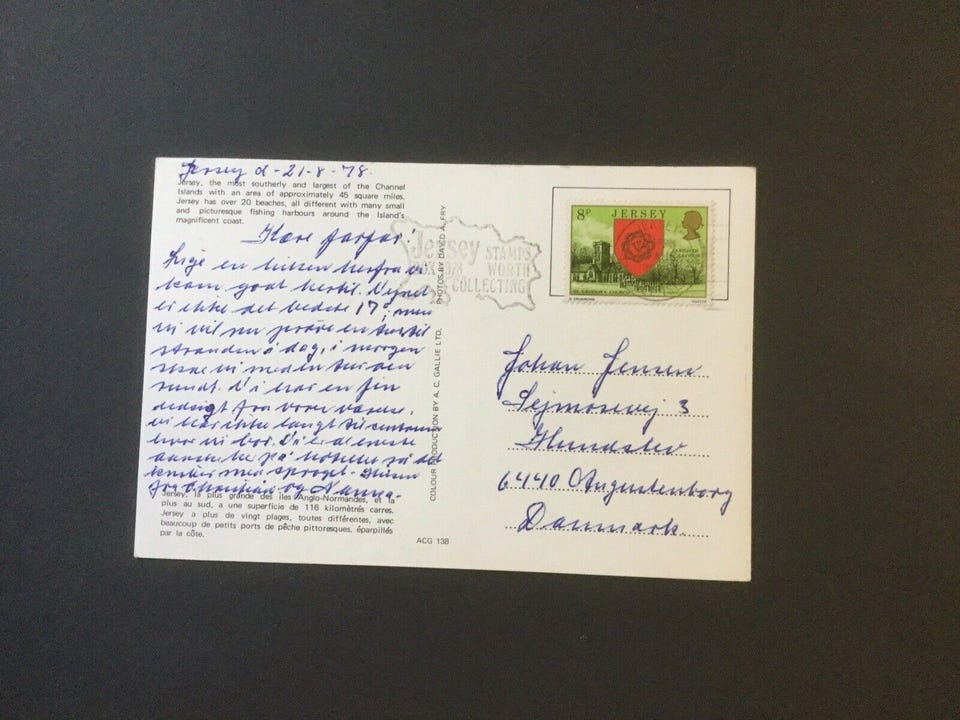 Jersey d-21-8-78.
Jersey, the most southerly and largest of the Channel
Islands with an area of approximately 45 square miles.
Jersey has over 20 beaches, all different with many small
and picturesque fishing harbours around the Island's
magnificent coast.
Kære farfar!
en hilsen herfra vi
kom godt hertil. Vejret
er ikke det bedste 17°, men
vi vil nu prøve en tur til
stranden i dag, i morgen
skal vi med en tur øen
rundt. Vi har en fin
udsigt fra vore værelse.
vi har ikke langt til centrum
hvor vi bor. Vi er de eneste
danske her på hotellet så det
kniber med sproget. Hilsen
fra Christian og Nanna-
Jersey, la plus grande des iles Anglo-Normandes, et la
plus au sud, a une superficie de 116 kilomètrés carres.
Jersey a plus de vingt plages, toutes différentes, avec
beaucoup de petits ports de pêche pittoresques, éparpillés
par la côte.
ACG 138
COLOUR PRODUCTION BY A. C. GALLIE LTD. PHOTOS BY DAVID A. FRY
Jersey STAMPS
WORTH
COLLECTING
8P JERSEY
Johan Jensen
Sejmosevej 3
Hundslev
6440 Augustenborg
Danmark.